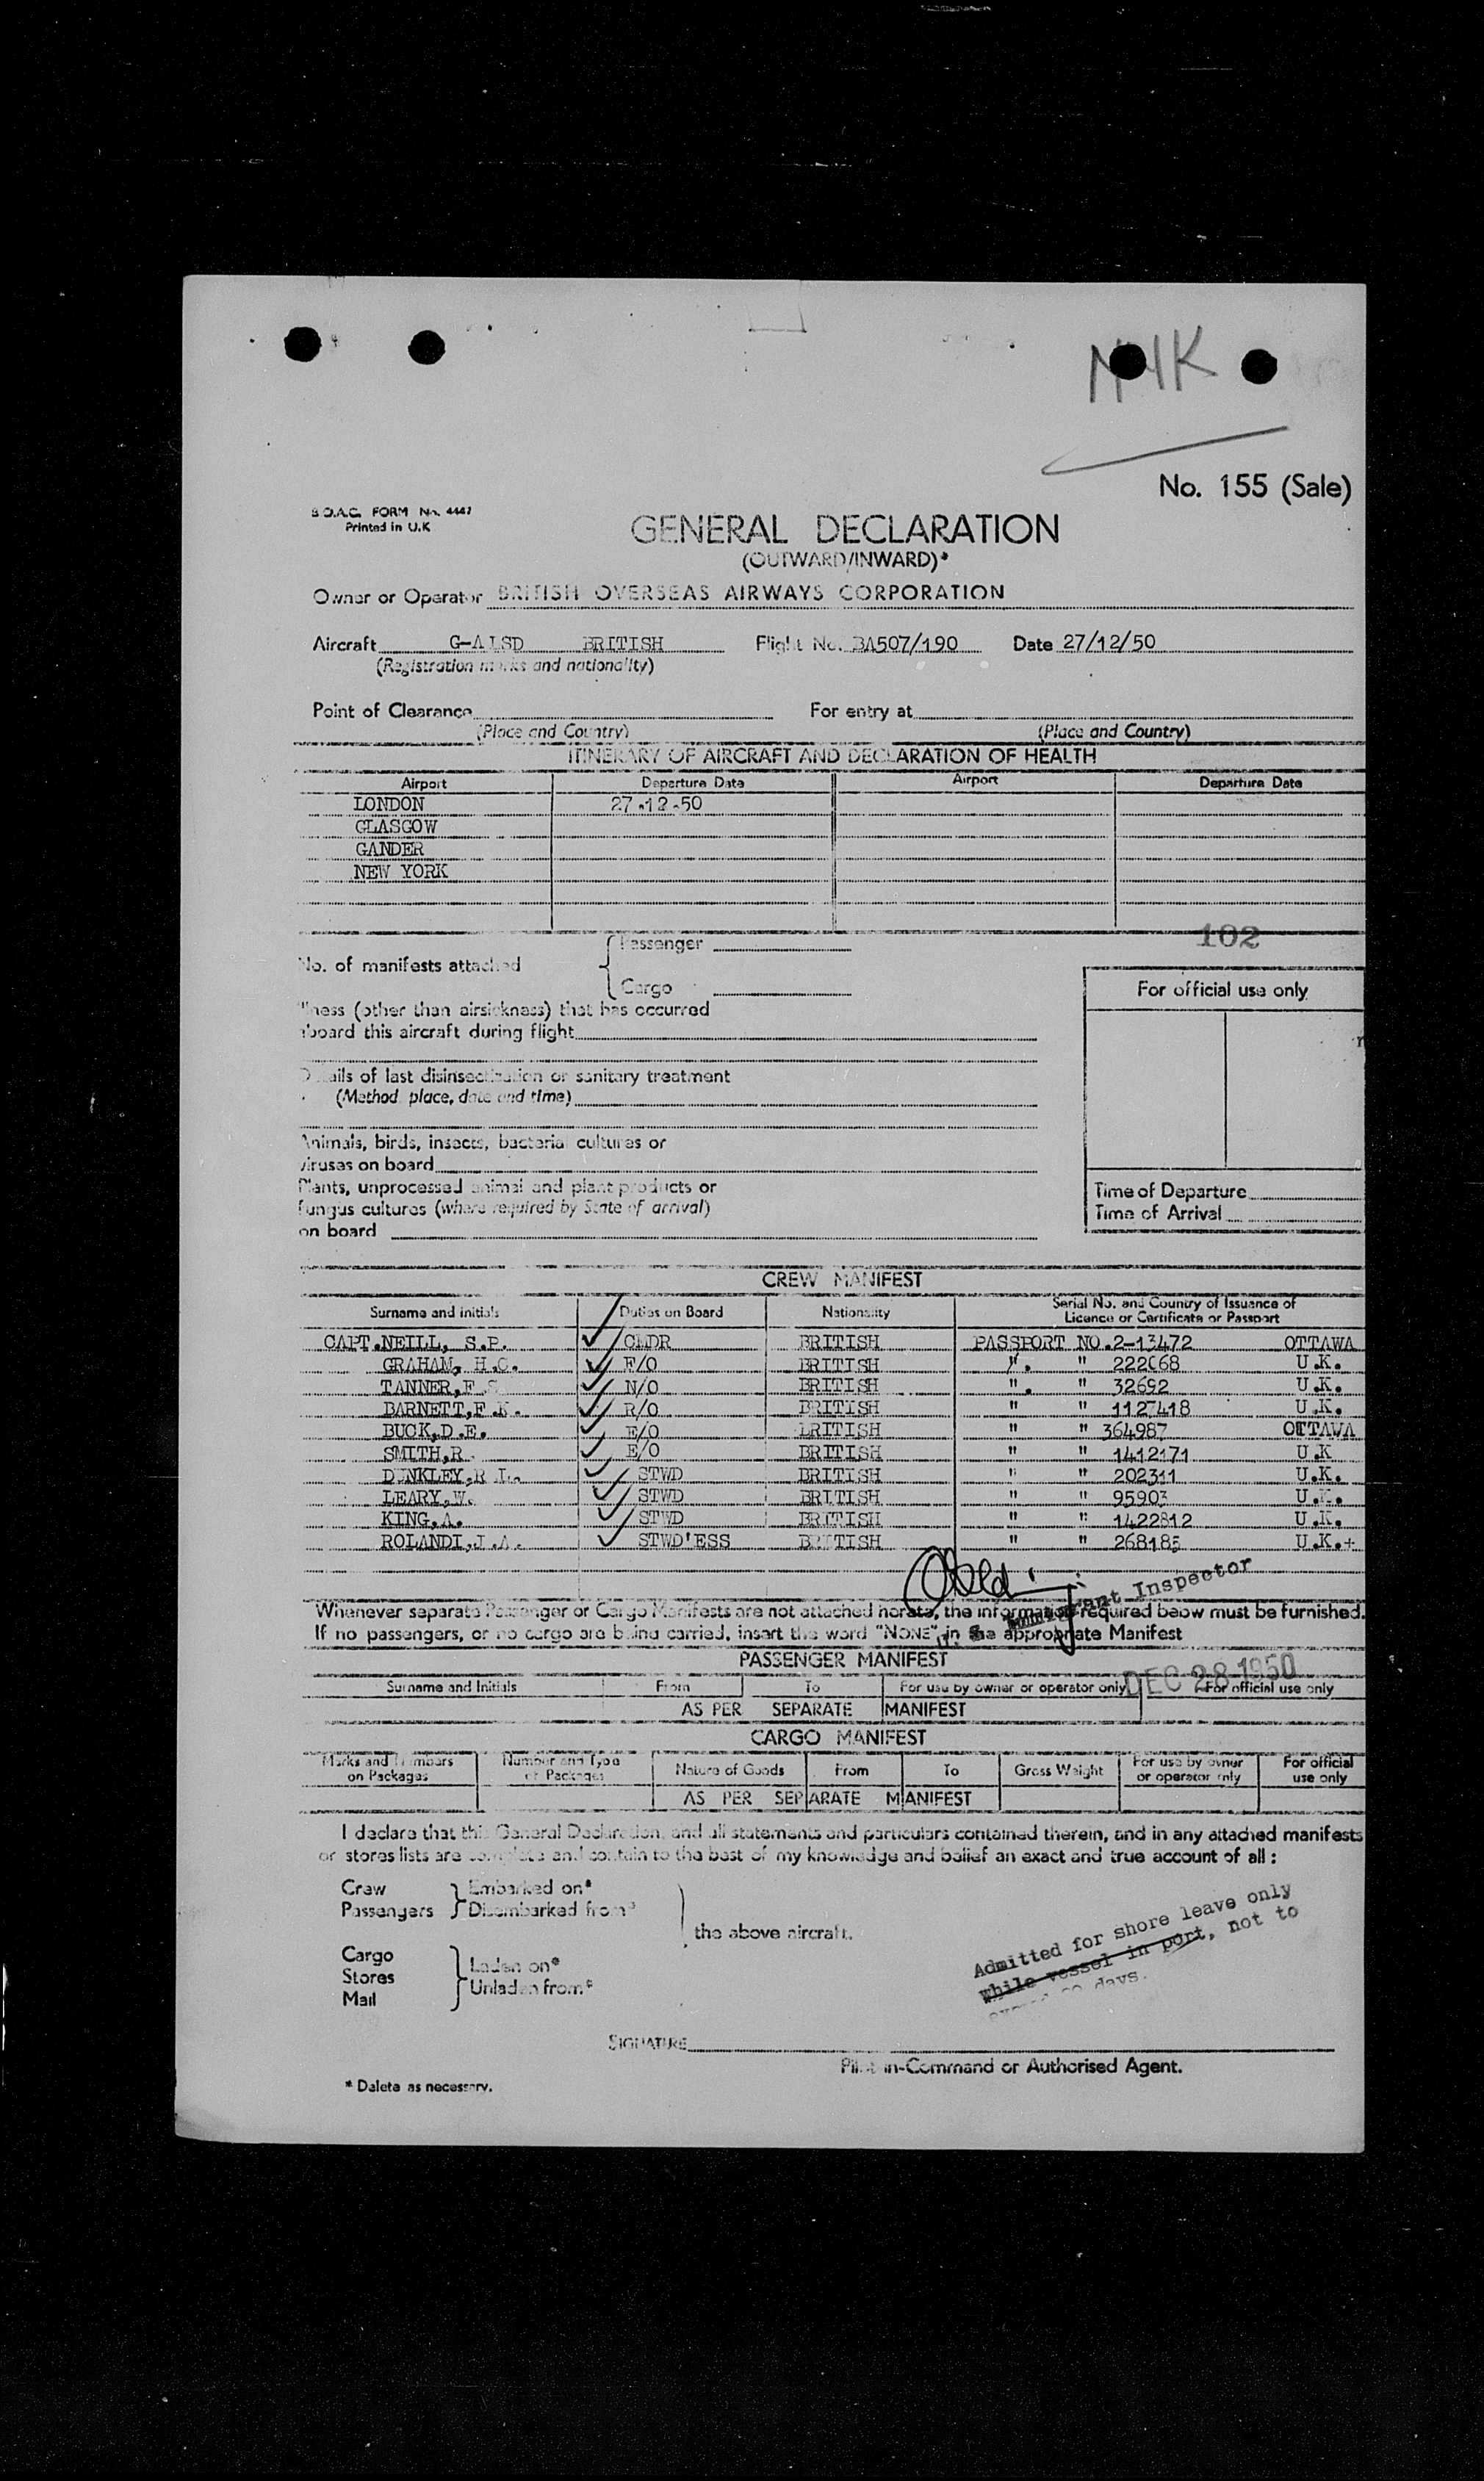 No. 155 (Sale)
B.O.A.C. FORM No. 4447
Printed in U.K
GENERAL DECLARATION
(OUTWARD/INWARD)*
Owner or Operator BRITISH OVERSEAS AIRWAYS CORPORATION
Aircraft G-ALSD BRITISH Flight No. BA507/190 Date 27/12/50
(Registration marks and nationality)
Point of Clearance For entry at
(Place and Country) (Place and Country)
ITINERARY OF AIRCRAFT AND DECLARATION OF HEALTH
Airport Departure Date Airport Departure Date
LONDON 27.12.50
GLASGOW
GANDER
NEW YORK
102
No. of manifests attached { Passenger
Cargo
For official use only
Illness (other than airsickness) that has occurred
aboard this aircraft during flight
Details of last disinsectization or sanitary treatment
(Method, place, date and time)
Animals, birds, insects, bacterial cultures or
viruses on board
Plants, unprocessed animal and plant products or
fungus cultures (where required by State of arrival)
on board
Time of Departure
Time of Arrival
CREW MANIFEST
Surname and initials Duties on Board Nationality Serial No. and Country of Issuance of
Licence or Certificate or Passport
CAPT.NEILL, S.P. CMDR BRITISH PASSPORT NO.2-13472 OTTAWA
GRAHAM, H.C. F/O BRITISH " " 222068 U.K.
TANNER,F.S N/O BRITISH " " 32692 U.K.
BARNETT,F.K. R/O BRITISH " " 1127418 U.K.
BUCK,D.E. E/O BRITISH " " 364987 OTTAWA
SMITH,R. E/O BRITISH " " 1412171 U.K
DUNKLEY,R.L. STWD BRITISH " " 202311 U.K.
LEARY,W. STWD BRITISH " " 95903 U.K.
KING.A. STWD BRITISH " " 1422812 U.K.
ROLANDI,J.A. STWD'ESS BRITISH " " 268185 U.K.+
U. S. Immigrant Inspector
Whenever separate Passenger or Cargo Manifests are not attached hereto, the information required below must be furnished.
If no passengers, or no cargo are being carried, insert the word "NONE" in the appropriate Manifest
PASSENGER MANIFEST
DEC 28 1950
Surname and Initials From To For use by owner or operator only For official use only
AS PER SEPARATE MANIFEST
CARGO MANIFEST
Marks and Numbers on Packages Number and Type of Packages Nature of Goods From To Gross Weight For use by owner or operator only For official use only
AS PER SEPARATE MANIFEST
I declare that this General Declaration, and all statements and particulars contained therein, and in any attached manifests
or stores lists are complete and contain to the best of my knowledge and belief an exact and true account of all:
Crew } Embarked on*
Passengers } Disembarked from*
the above aircraft.
Cargo
Stores } Laden on*
Mail } Unladen from*
Admitted for shore leave only
while vessel in port, not to
days.
SIGNATURE
Pilot-in-Command or Authorised Agent.
* Delete as necessary.